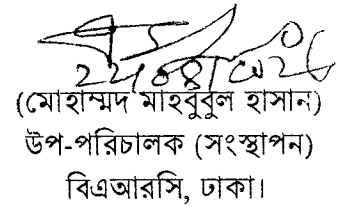 (মোহাম্মদ মাহবুবুল হাসান)
উপ-পরিচালক (সংস্থাপন)
বিএআরসি, ঢাকা।